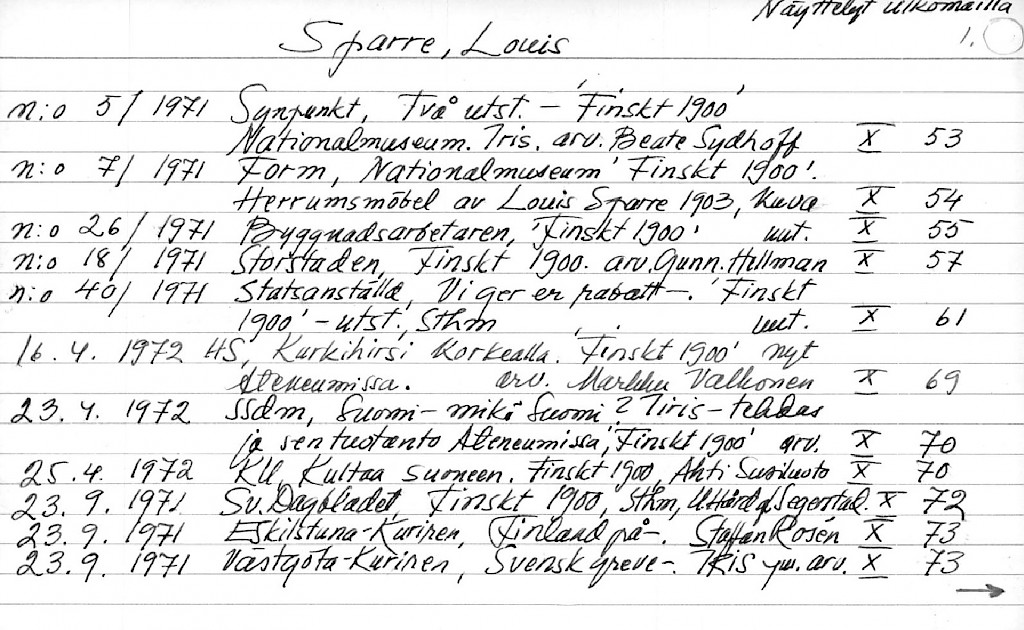 Näyttelyt ulkomailla
1.
Sparre, Louis
n:o 5/ 1971 Synpunkt, Två utst. – 'Finskt 1900'
Nationalmuseum. Iris. arv. Beate Sydhoff X 53
n:o 7/ 1971 Form, Nationalmuseum 'Finskt 1900'.
Herrumsmöbel av Louis Sparre 1903, kuva X 54
n:o 26/ 1971 Byggnadsarbetaren, 'Finskt 1900' uut. X 55
n:o 18/ 1971 Storstaden, Finskt 1900. arv. Gunn. Hellman X 57
n:o 40/ 1971 Statsanställd, Vi ger er rabatt –. 'Finskt
1900' – utst., Sthm uut. X 61
16.4. 1972 HS, Kurkihirsi korkealla. 'Finskt 1900' nyt
Ateneumissa. arv. Markku Valkonen X 69
23.4. 1972 SSdm, Suomi – mikä Suomi? Iiris-tehdas
ja sen tuotanto Ateneumissa, 'Finskt 1900' arv. X 70
25.4. 1972 KU, Kultaa suoneen. Finskt 1900, Ahti Susiluoto X 70
23.9. 1971 Sv. Dagbladet, Finskt 1900, Sthm, U. Hård af Segerstad. X 72
23.9. 1971 Eskilstuna-Kuriren, Finland på –. Staffan Rosén X 73
23.9. 1971 Västgöta-Kuriren, Svensk greve –. IRIS ym. arv. X 73
→